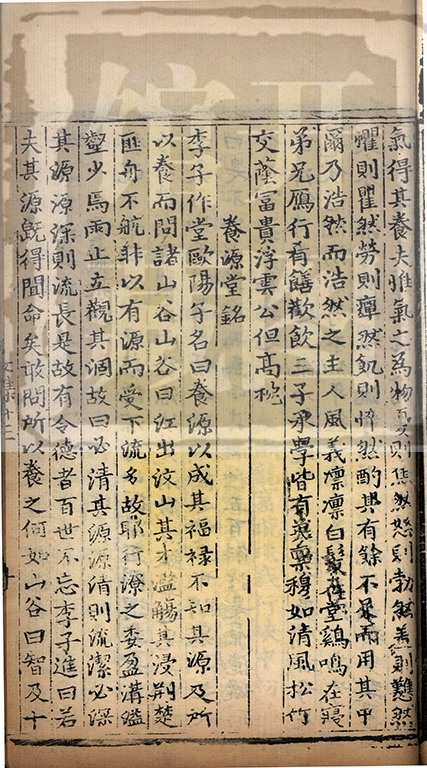 氣得其養夫惟氣之為物□則焦然怒則勃然羞則赧然
懼則瞿然勞則癉然飢則悴然酌其有餘不足而用其中
爾乃浩然而浩然之主人風義凛凛白鬚在堂鷄鳴在寢
弟兄鴈行肴饍歡飲三子承學皆有稟穆如清風松竹
交蔭冨貴浮雲公但高枕
養源堂銘
李子作堂歐陽子名曰養源以成其福禄不知其源及所
以養而問諸山谷山谷曰江出汶山其才濫觴其浸荆楚
匪舟不航非以有源而受下流多故耶行潦之委盈溝溢
壑少焉雨止立觀其涸故曰必清其源源清則流潔必深
其源源深則流長是故有令德者百世不忘李子進曰若
夫其源旣得聞命矣敢問所以養之何如山谷曰智及十